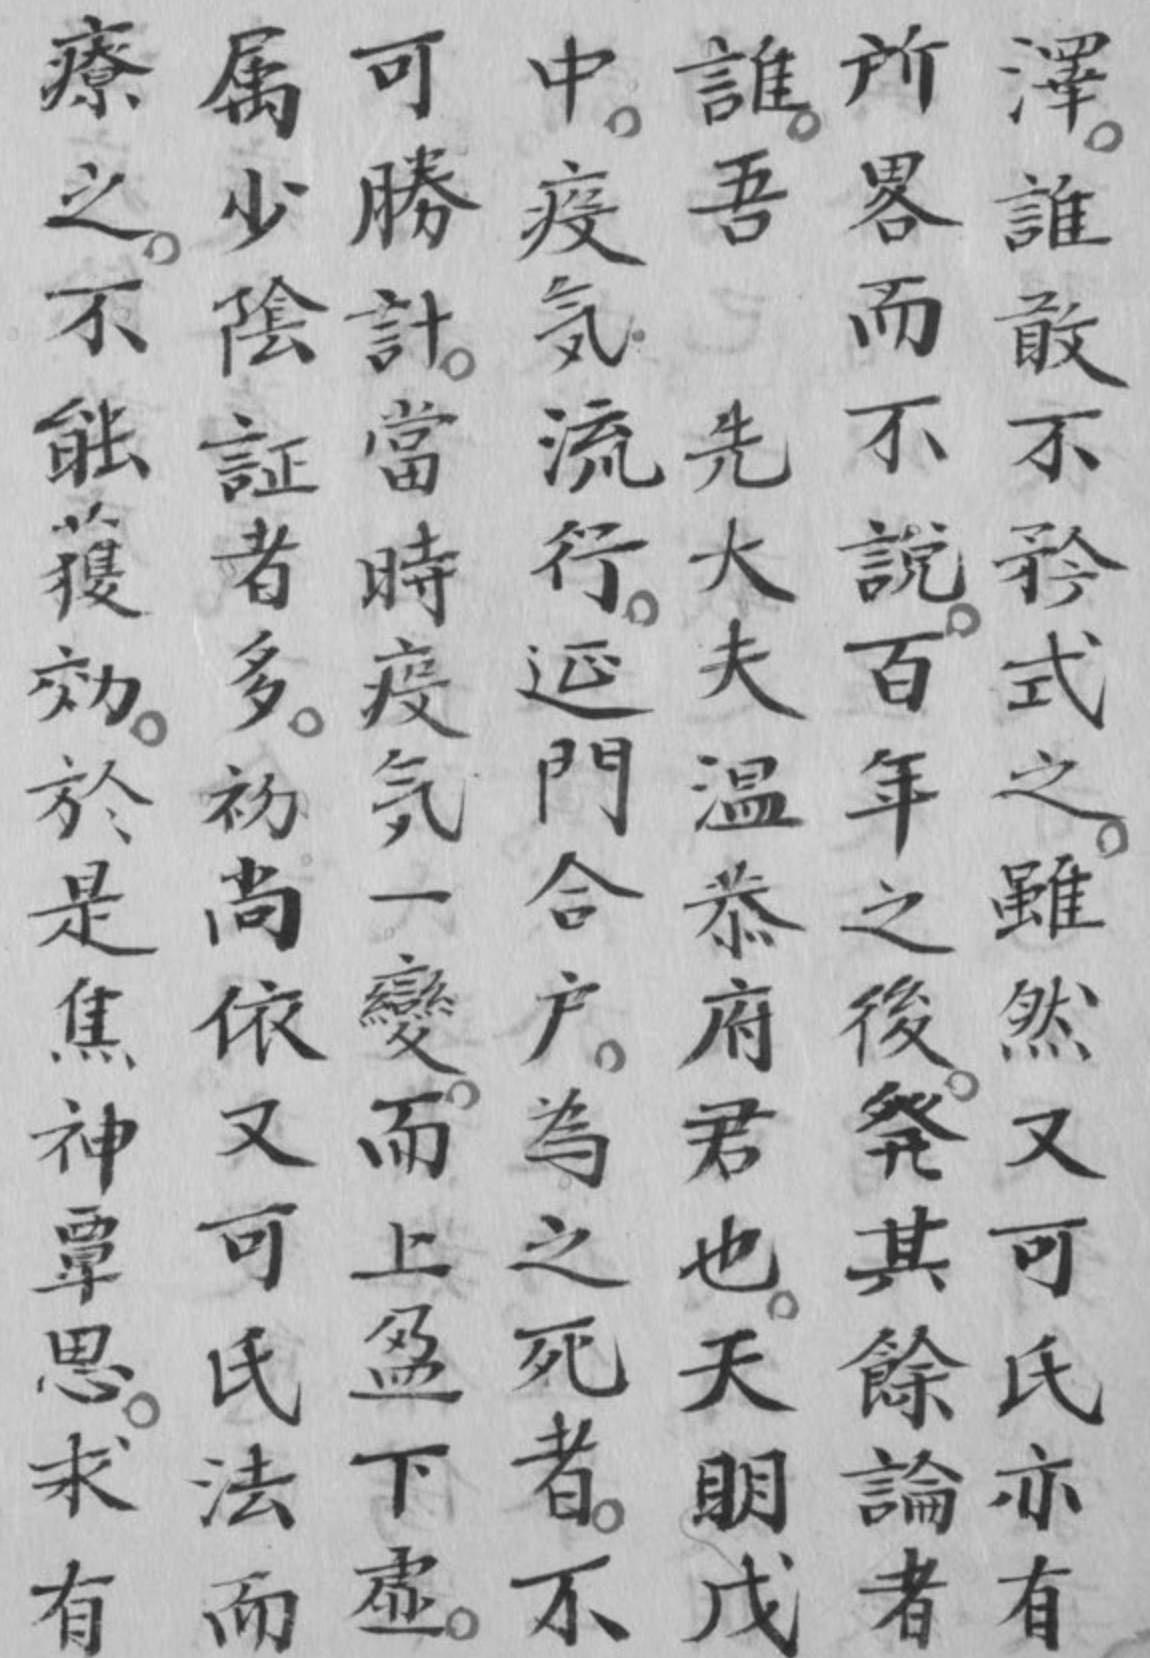 澤。誰敢不矜式之。雖然又可氏亦有
所畧而不說。百年之後。發其餘論者
誰。吾　先大夫温恭府君也。天明戊
中。疫気流行。延門合户。為之死者。不
可勝計。當時疫気一變。而上盈下虚。
属少陰証者多。初尚依又可氏法而
療之。不能獲効。於是焦神覃思。求有